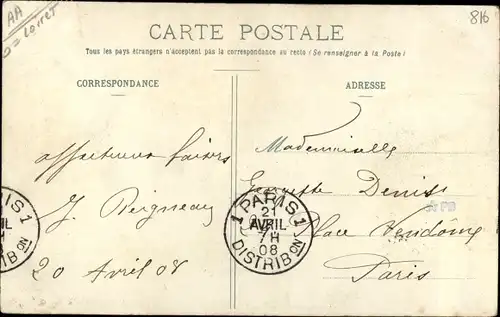 AA
Loiret
816
CARTE POSTALE
Tous les pays étrangers n'acceptent pas la correspondance au recto (Se renseigner à la Poste)
CORRESPONDANCE
ADRESSE
Mademoiselle
affectueux
Denise
Place Vendôme
Paris
20 Avril 08
PARIS 1
DISTRIBON
1 PARIS 1
21
AVRIL
7H
08
DISTRIBON